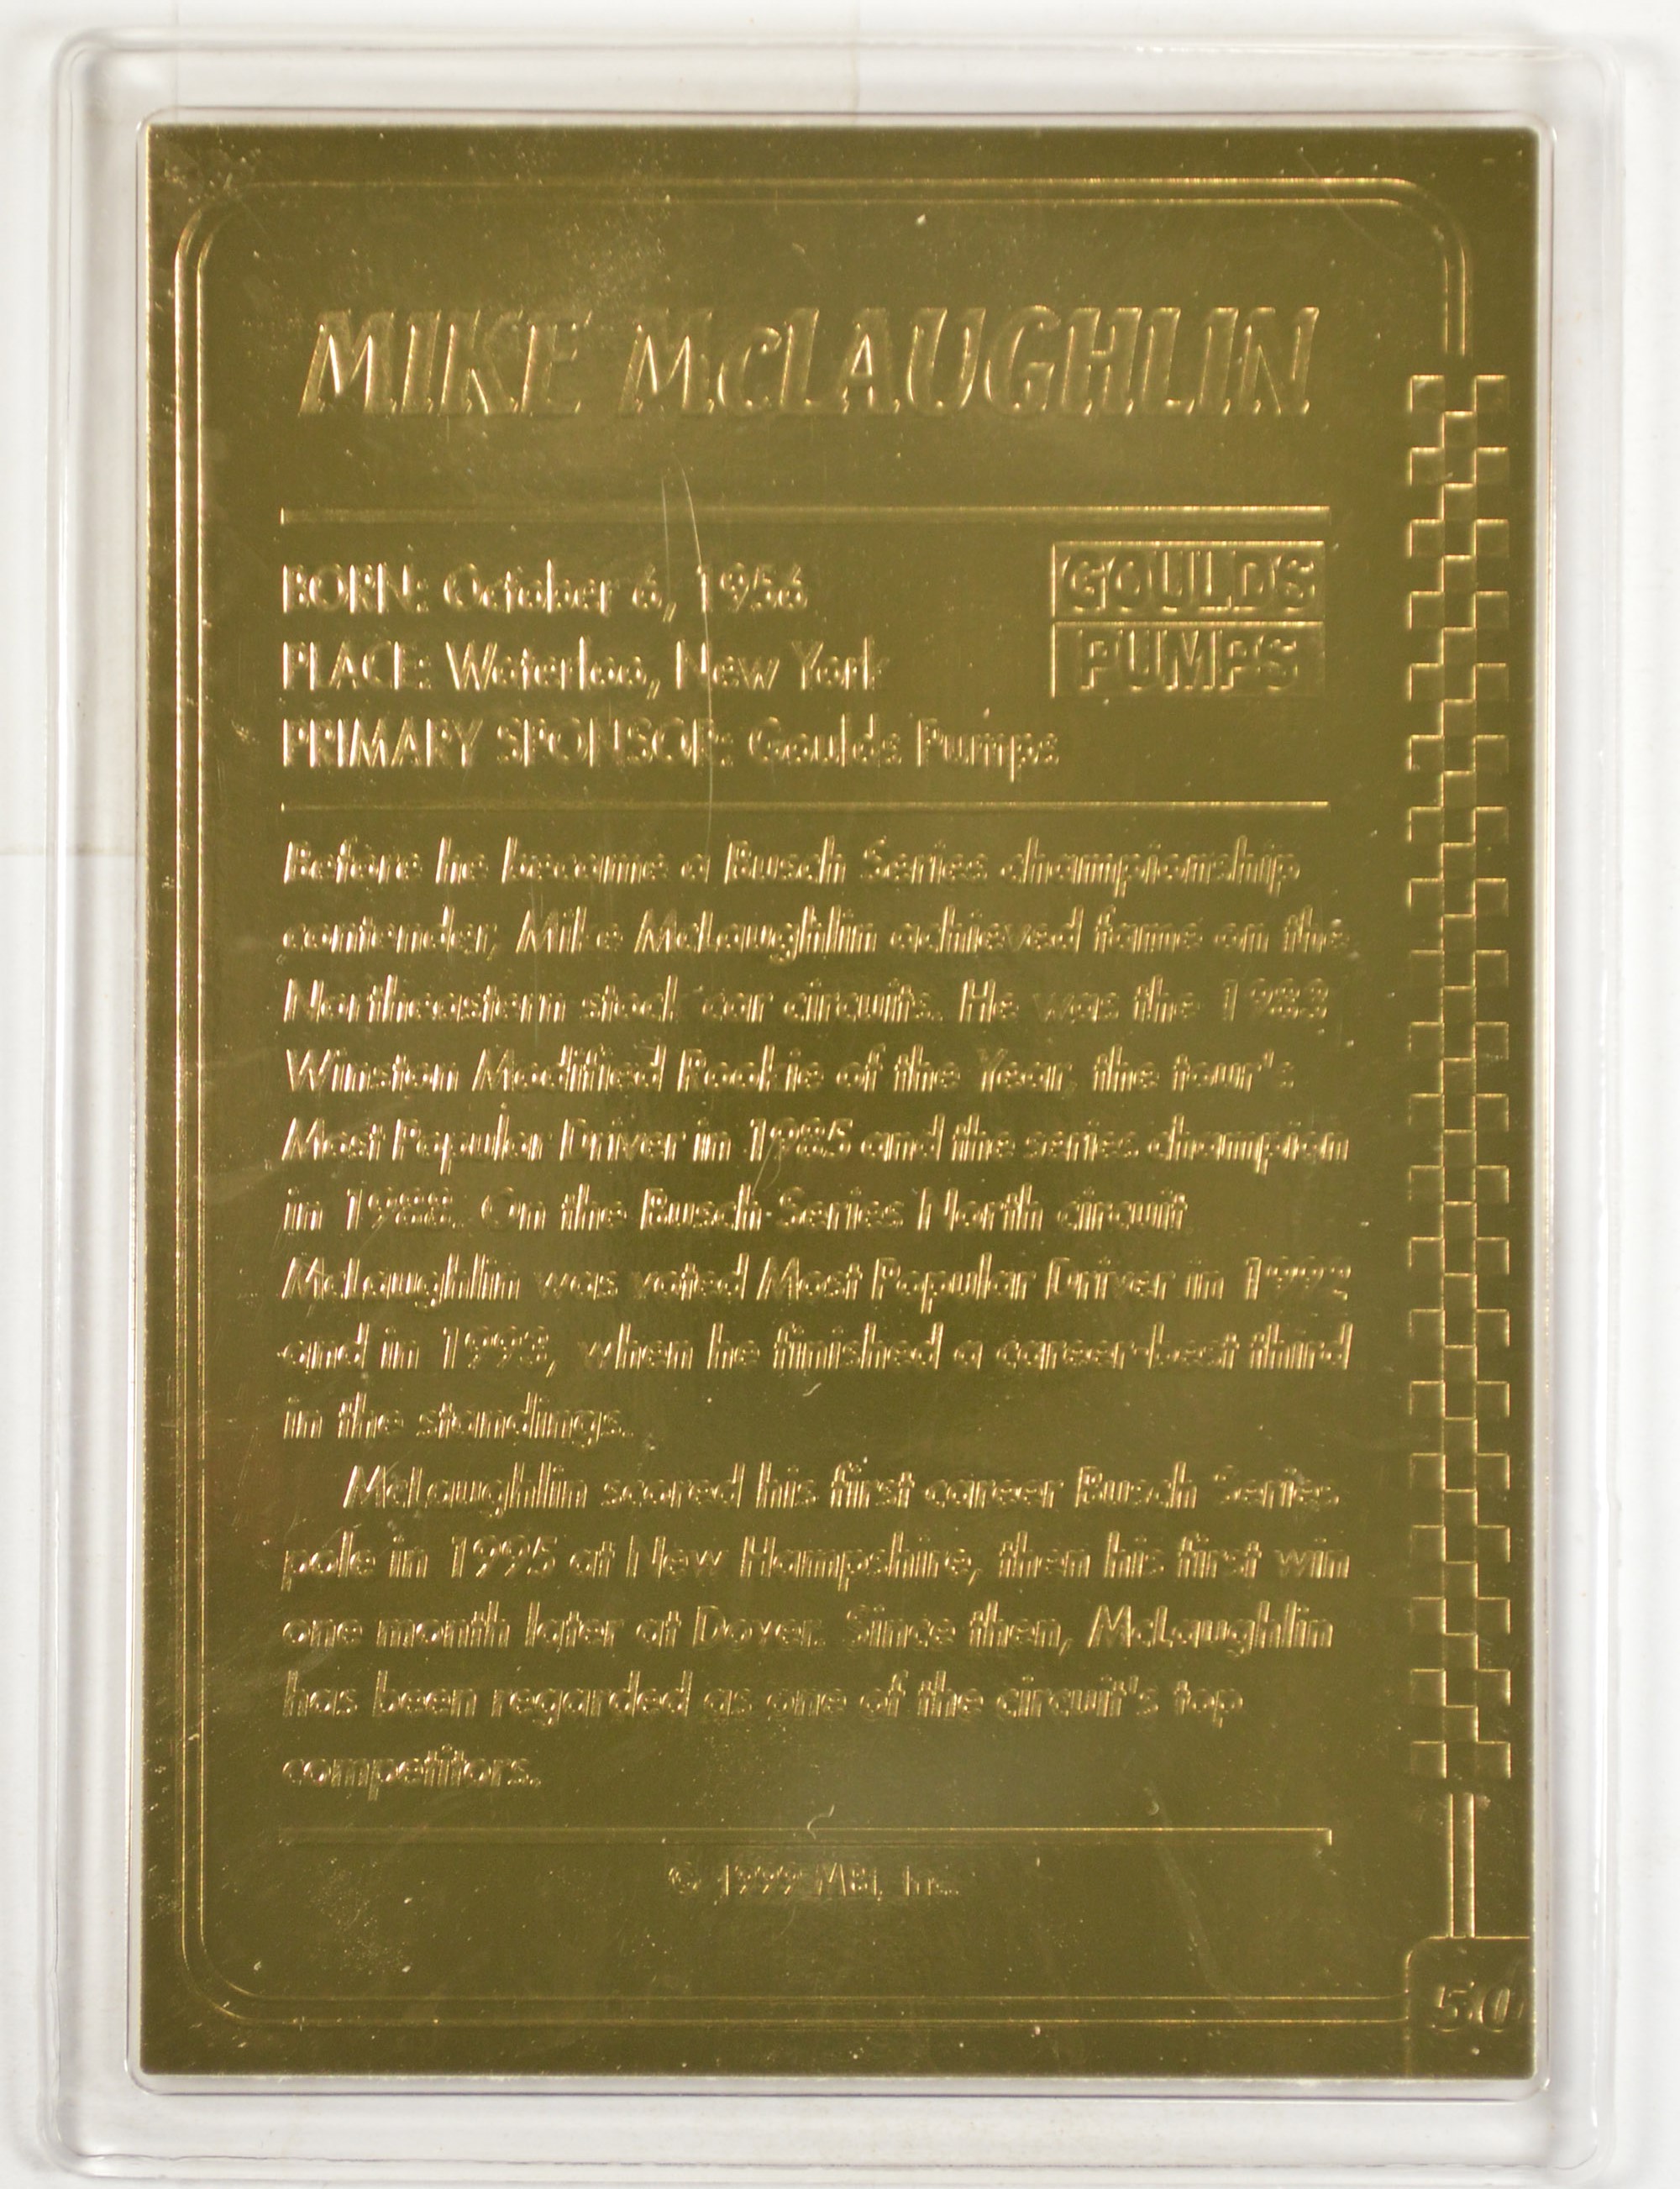 MIKE McLAUGHLIN
BORN: October 6, 1956
PLACE: Waterloo, New York
PRIMARY SPONSOR: Goulds Pumps
GOULDS
PUMPS
Before he became a Busch Series championship
contender, Mike McLaughlin achieved fame on the
Northeastern stock car circuits. He was the 1983
Winston Modified Rookie of the Year, the tour's
Most Popular Driver in 1985 and the series champion
in 1988. On the Busch Series North circuit
McLaughlin was voted Most Popular Driver in 1992
and in 1993, when he finished a career-best third
in the standings.
McLaughlin scored his first career Busch Series
pole in 1995 at New Hampshire, then his first win
one month later at Dover. Since then, McLaughlin
has been regarded as one of the circuit's top
competitors.
© 1999 MBI, Inc.
50